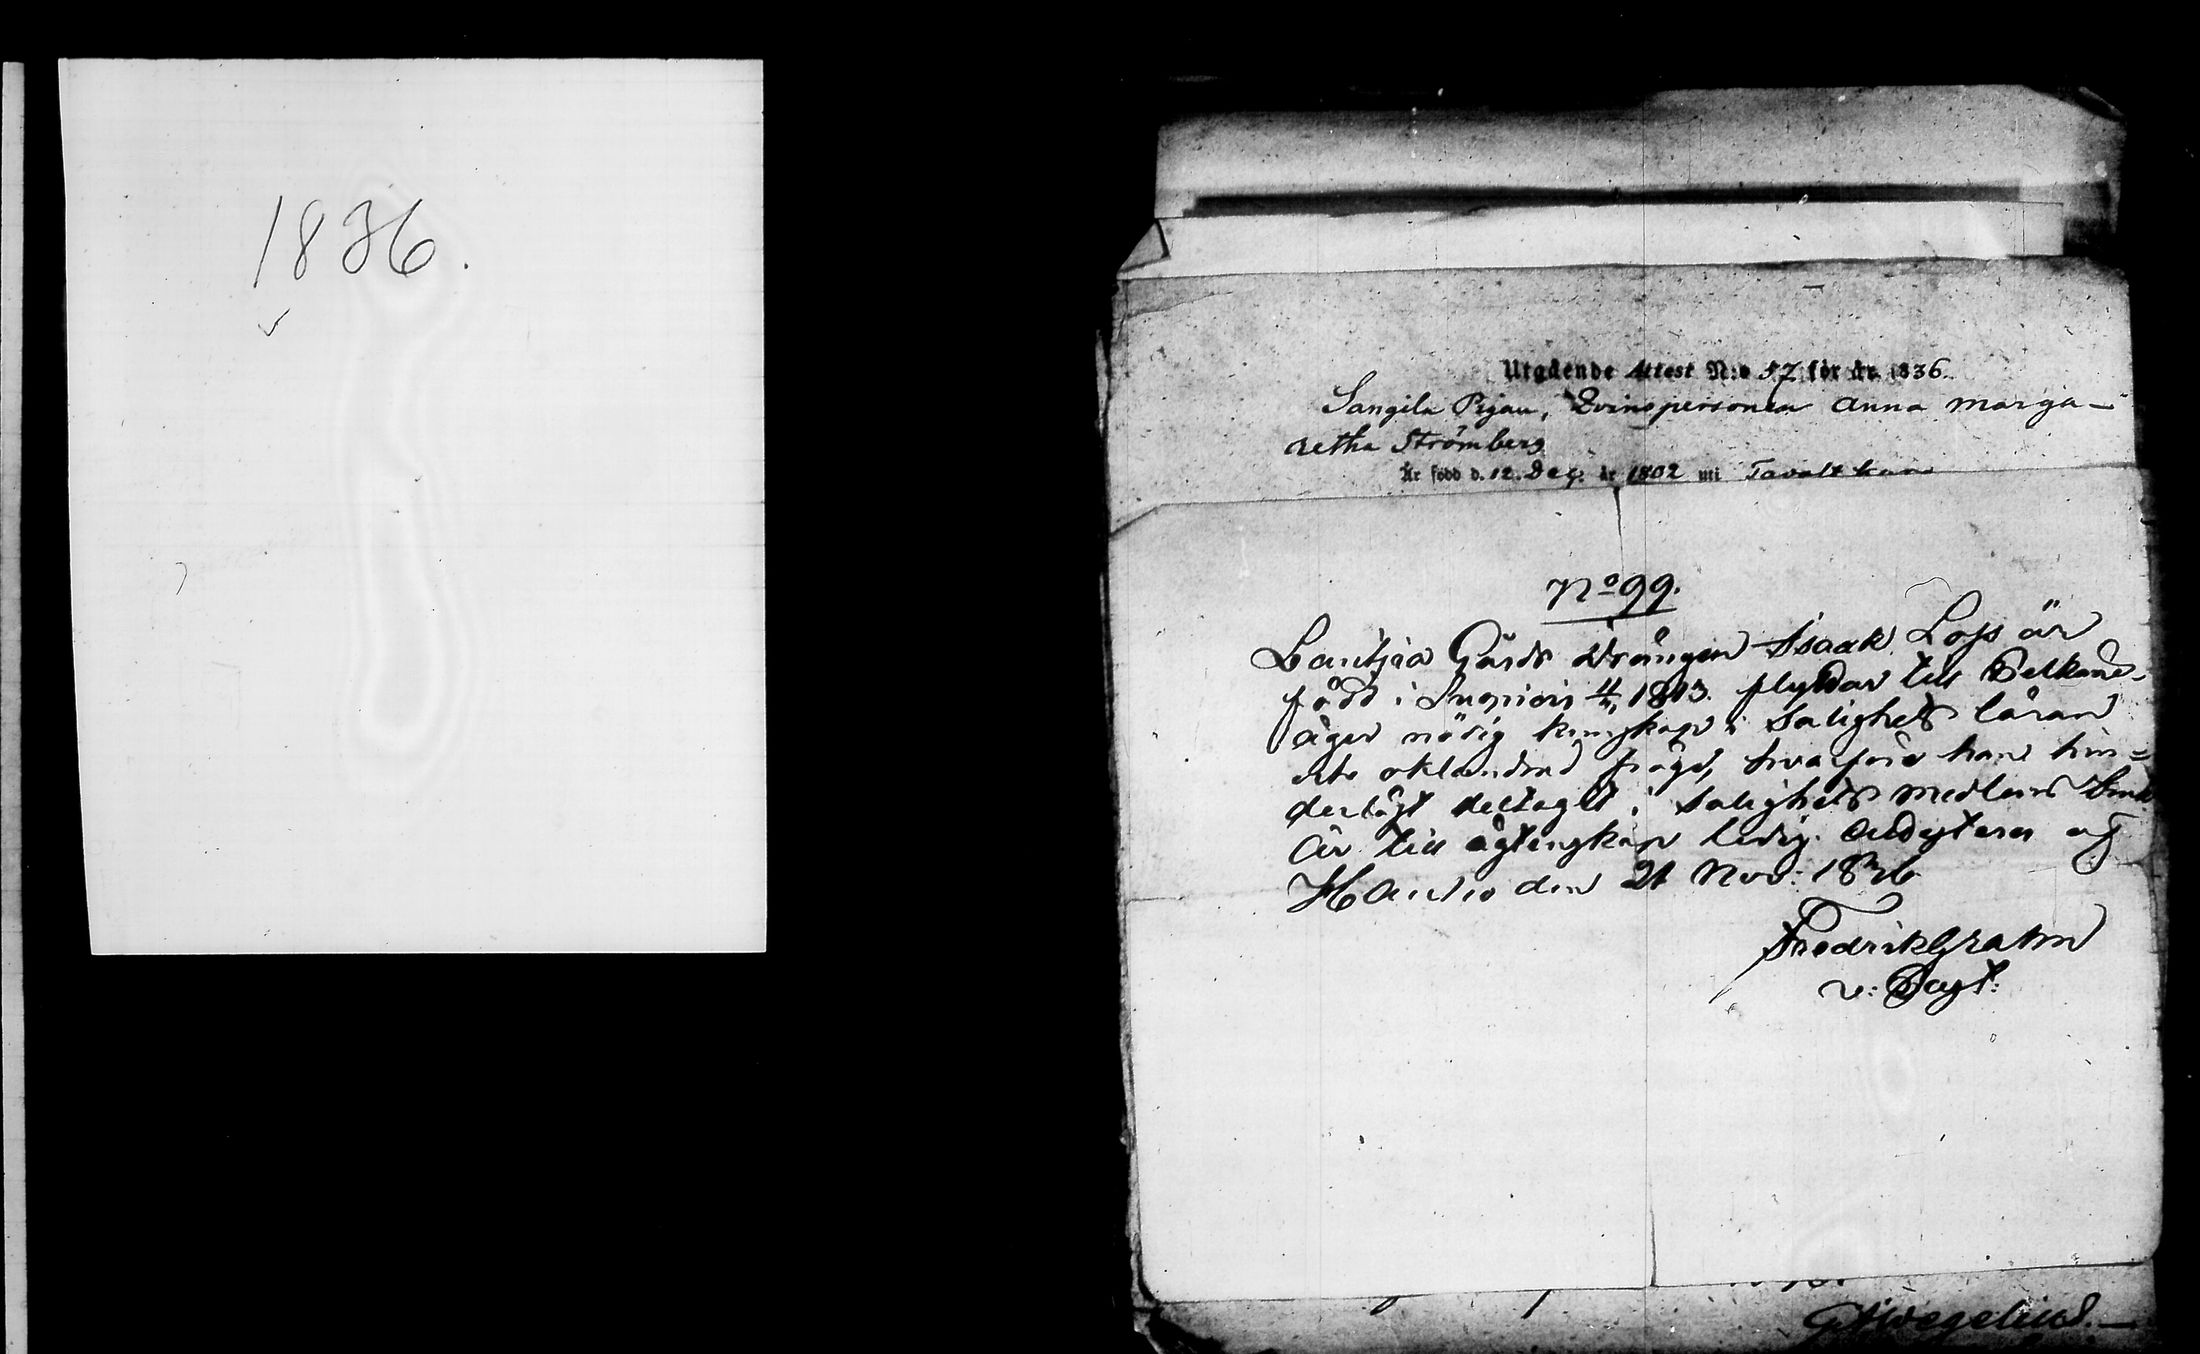 1836.
Utgående Attest N:o 57 för år 1836.
Sangila Pigan, Qvinspersonen Anna Marga-
retha Strömberg
Är född d. 12. Dec. år 1802 uti Tavastkam
No 99.
Gårds Drängen Isaak Loss är
född i 1813. flyttar till Pelkane,
äger nödig kunskap i Salighets läran
ock oklandrad frägd, hvarföre han hin-
dertågt deltagit i Salighets medlens bruk
Är till ägtenskap ledig. Audgteras af
Hauho den 21 Nov: 1836
Fredrik Grahn
v: Past:
Wegelius.-